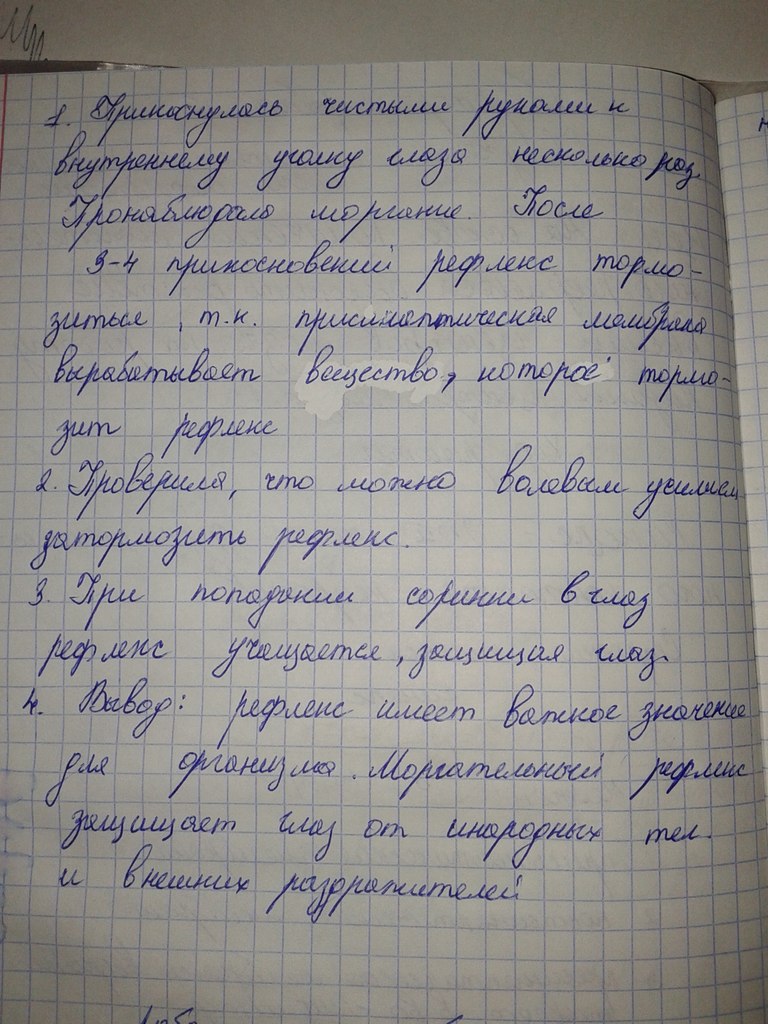 1. Прикоснулась чистыми руками к
внутреннему уголку глаза несколько раз.
Пронаблюдала моргание. После
3-4 прикосновений рефлекс тормо-
зиться, т.к. присинаптическая мембрана
вырабатывает вещество, которое тормо-
зит рефлекс
2. Проверила, что можно волевым усилием
затормозить рефлекс.
3. При попадании соринки в глаз
рефлекс учащается, защищая глаз.
4. Вывод: рефлекс имеет важное значение
для организма. Моргательный рефлекс
защищает глаз от инородных тел
и внешних раздражителей